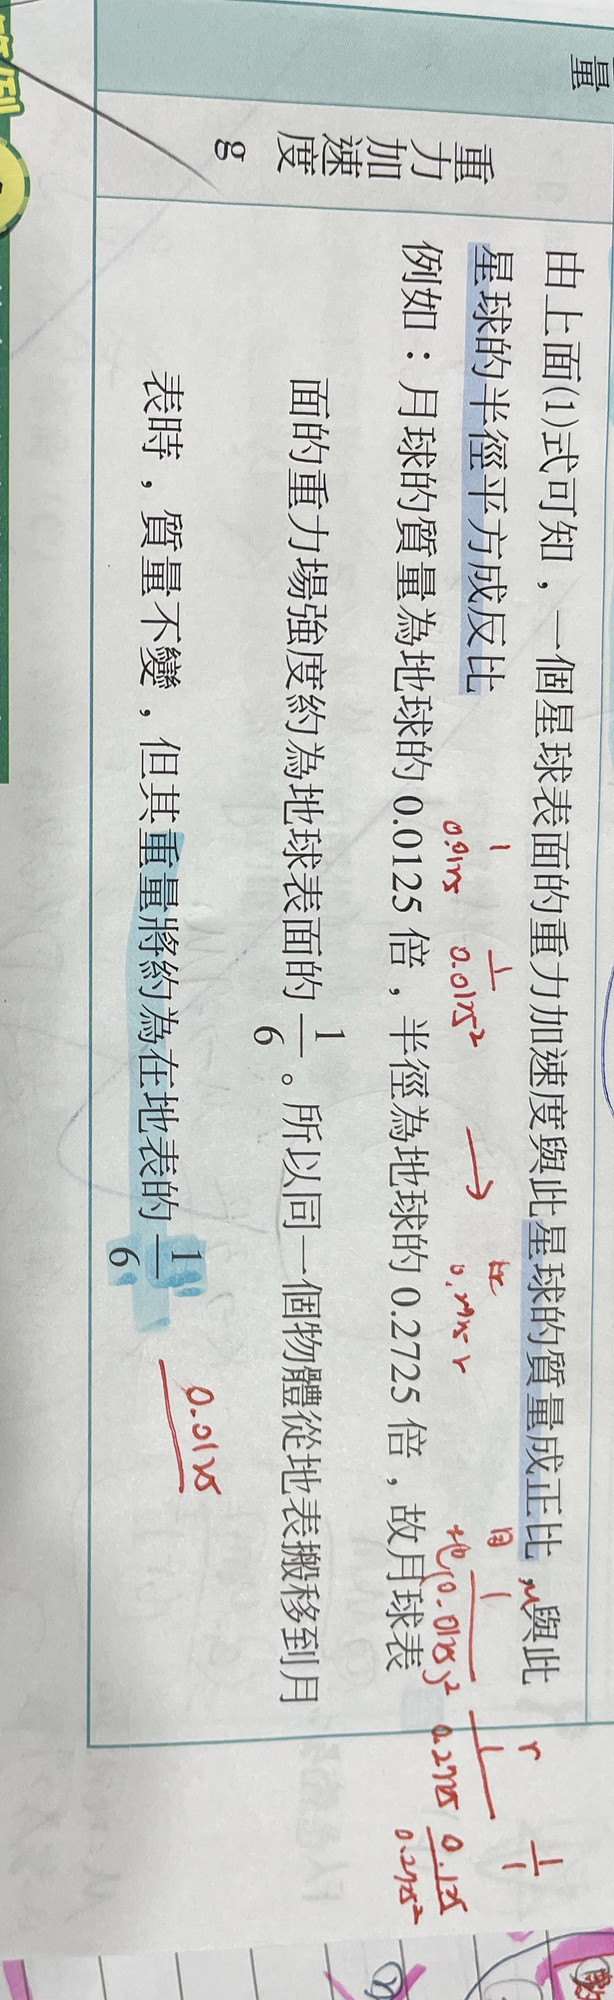 量
重力加速度
g
由上面(1)式可知，一個星球表面的重力加速度與此星球的質量成正比，與此
星球的半徑平方成反比
例如：月球的質量為地球的 0.0125 倍，半徑為地球的 0.2725 倍，故月球表
面的重力場強度約為地球表面的 1/6 。所以同一個物體從地表搬移到月
表時，質量不變，但其重量將約為在地表的 1/6
1
0.0125
1
0.0125²
→
月 1
地 (0.0125)²
M
r
1
0.2725
1/1
0.125
0.2725²
0.0125
範例